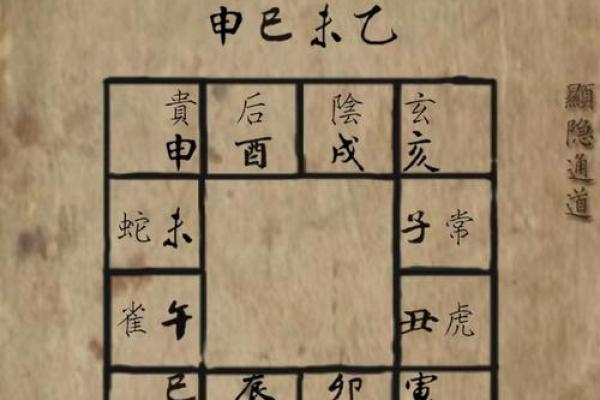 申巳未乙
貴 后 陰 玄
申 酉 戌 亥
蛇未 子常
雀午 丑虎
巳 辰 卯 寅
顯隐通道